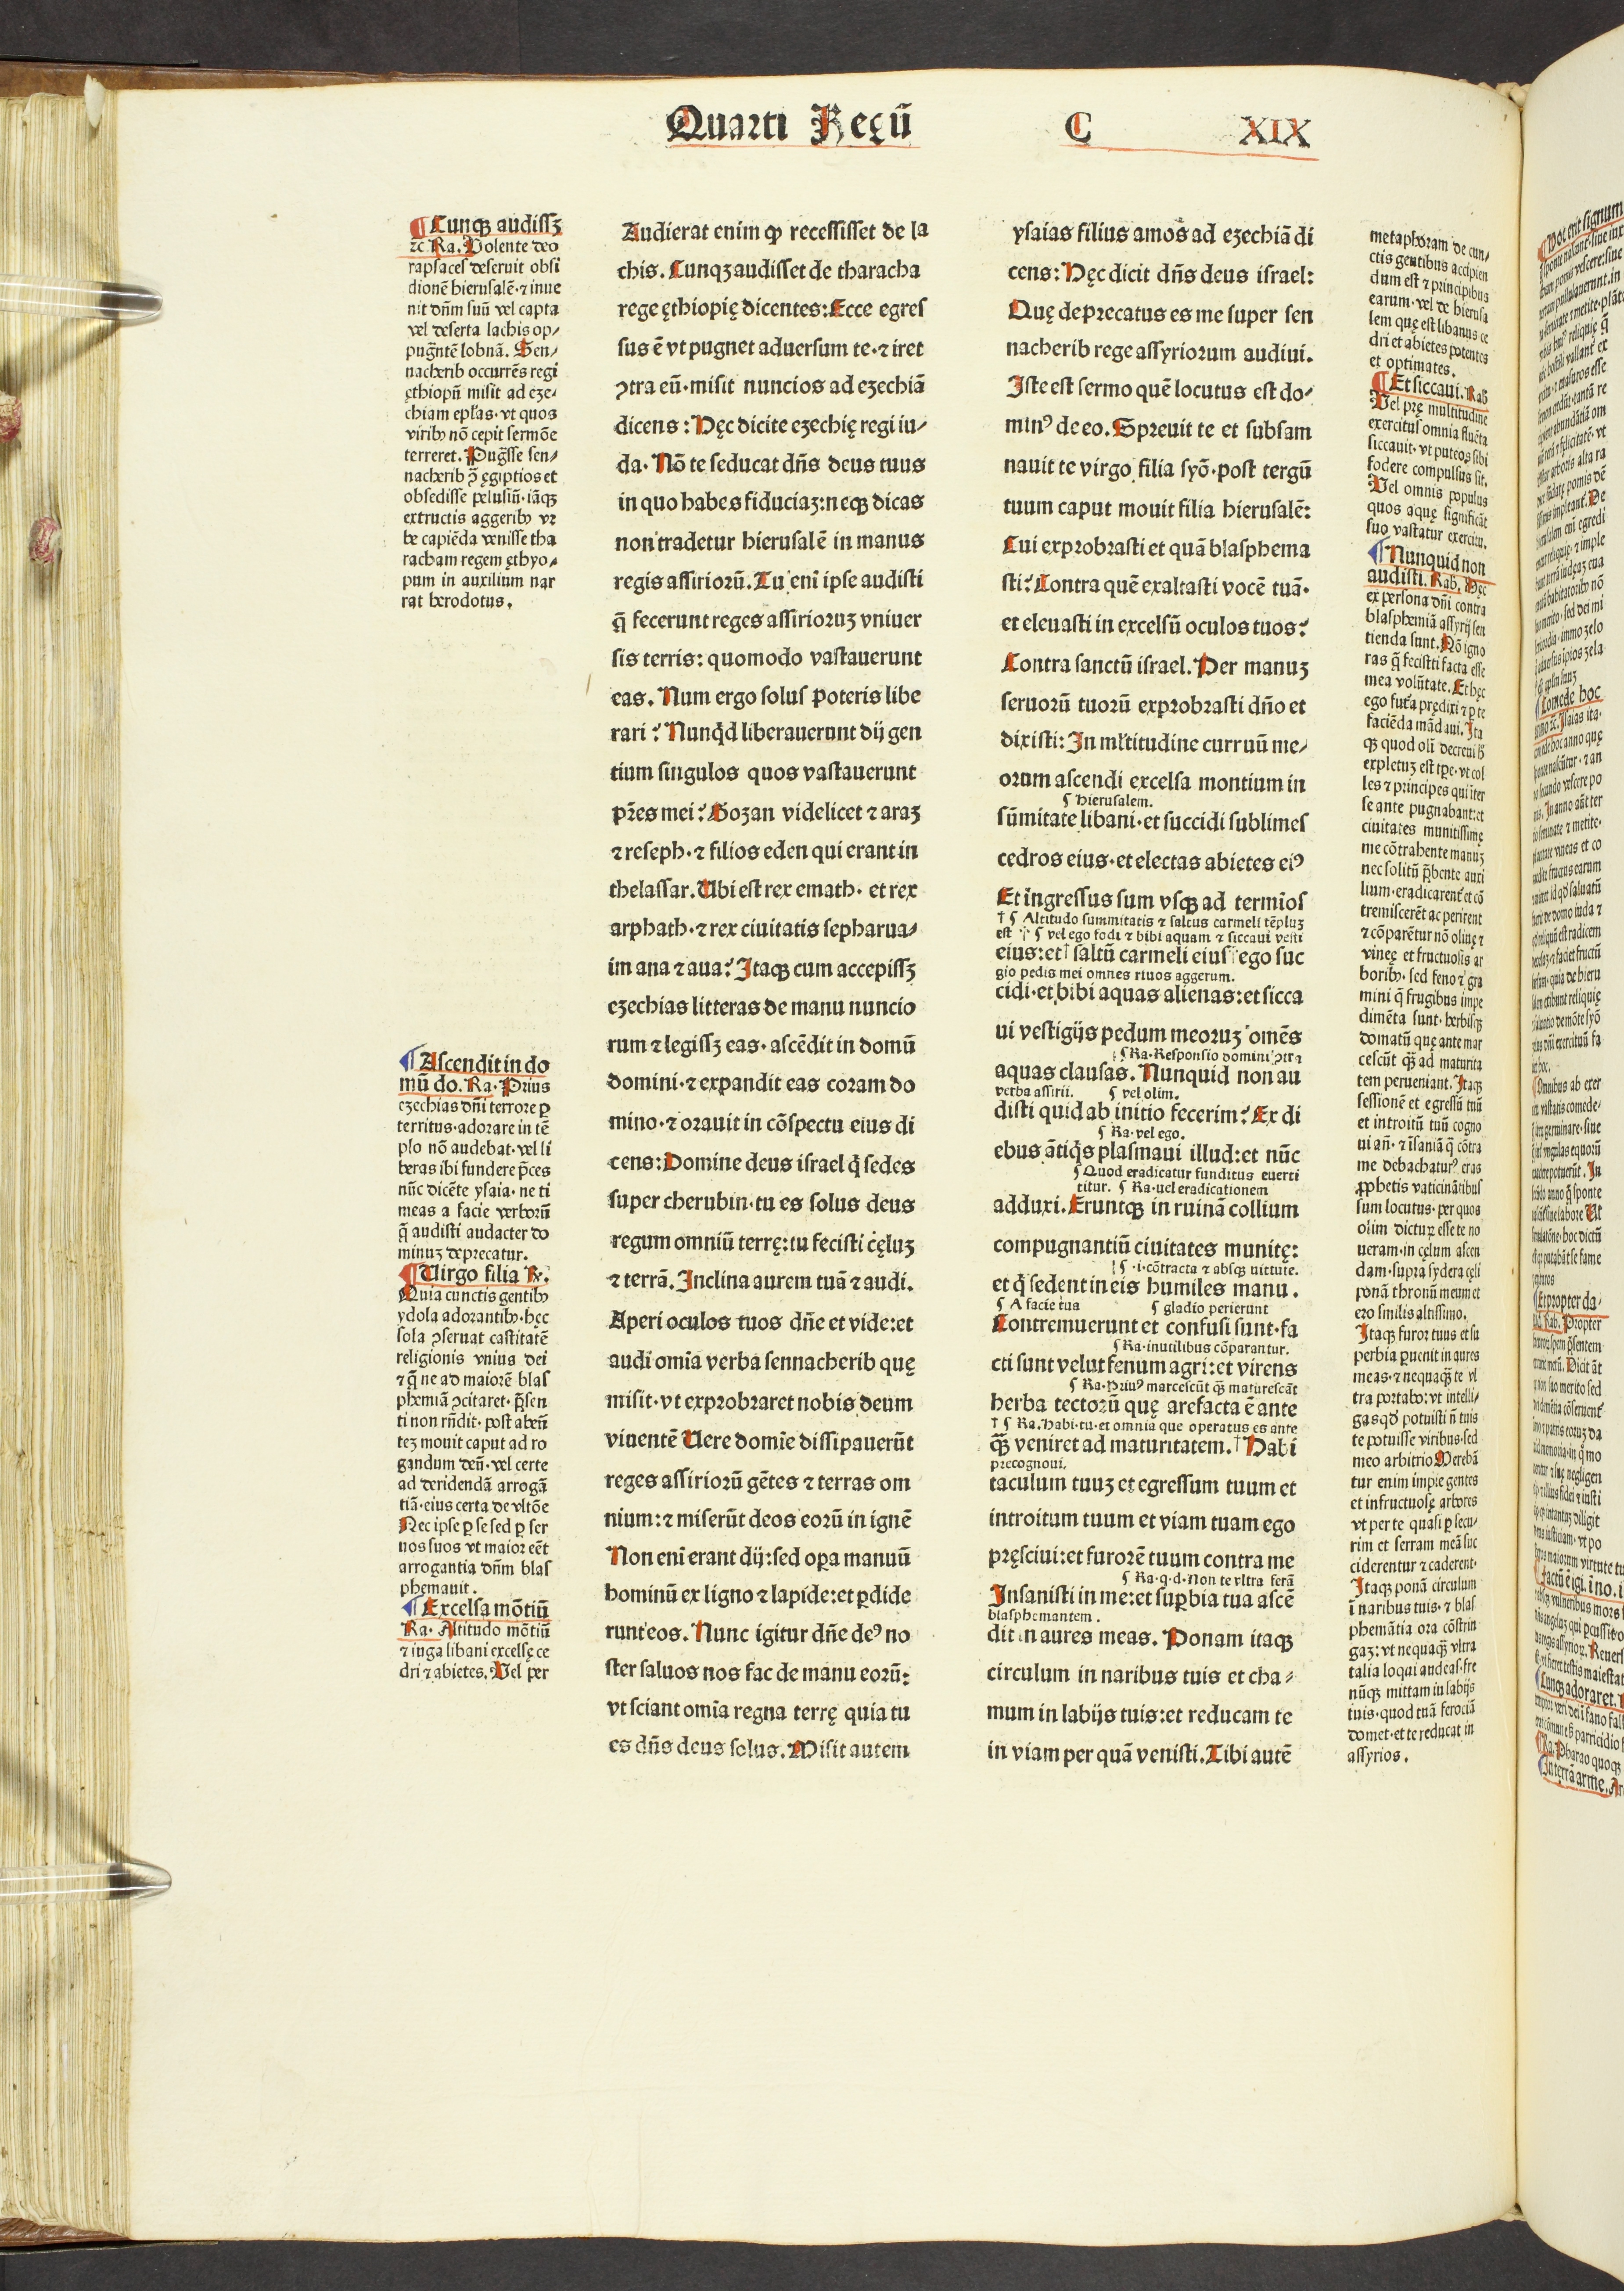 Quarti Regū C XIX
¶ Cunqꝫ audissꝫ
⁊c Ra. Volente deo
rapsaces deseruit obsi
dionē hierusalē·⁊ inue
nit dn̄m suū vel capta
vel deserta lachis op⸗
pugn̄tē lobnā. Sen⸗
nacherib occurrēs regi
ęthiopū misit ad eze⸗
chiam ep̄las·vt quos
viribꝰ nō cepit sermōe
terreret. Pugn̄sse sen⸗
nacherib ꝯ̄ ęgiptios et
obsedisse pelusiū·iāqꝫ
extructis aggeribꝰ vr
be capiēda venisse tha
racham regem ęthyo⸗
pum in auxilium nar
rat herodotus.
¶ Ascendit in do
mū do. Ra. Prius
ezechias dn̄i terrore ꝑ
territus·adorare in tē
plo nō audebat·vel li
beras ibi fundere p̄ces
nūc dicēte ysaia·ne ti
meas a facie verborū
q̄ audisti audacter do
minuꝫ deprecatur.
¶ Virgo filia ꝛc.
Quia cunctis gentibꝰ
ydola adorantibꝰ·hęc
sola ꝯseruat castitatē
religionis vnius dei
⁊ q̄ ne ad maiorē blas
phemiā ꝯcitaret·p̄sen
ti non rn̄dit·post abeū
teꝫ mouit caput ad ro
gandum deū·vel certe
ad deridendā arrogā
tiā·eius certa de vltōe
Nec ipse ꝑ se sed ꝑ ser
uos suos vt maior eēt
arrogantia dn̄m blas
phemauit.
¶ Excelsa mōtiū
Ra. Altitudo mōtiū
⁊ iuga libani excelsę ce
dri ⁊ abietes. Vel per
Audierat enim ꝙ recessisset de la
chis. Cunqꝫ audisset de tharacha
rege ęthiopię dicentes: Ecce egres
sus ē vt pugnet aduersum te·⁊ iret
ꝯtra eū·misit nuncios ad ezechiā
dicens: Hęc dicite ezechię regi iu⸗
da. Nō te seducat dn̄s deus tuus
in quo habes fiduciaꝫ: neqꝫ dicas
non tradetur hierusalē in manus
regis assiriorū. Tu eni̅ ipse audisti
q̄ fecerunt reges assirioruꝫ vniuer
sis terris: quomodo vastauerunt
eas. Num ergo solus poteris libe
rari? Nunqd̄ liberauerunt dij gen
tium singulos quos vastauerunt
pr̄es mei? Gozan videlicet ⁊ araꝫ
⁊ reseph·⁊ filios eden qui erant in
thelassar. Ubi est rex emath·et rex
arphath·⁊ rex ciuitatis sepharua⸗
im ana ⁊ aua? Itaqꝫ cum accepissꝫ
ezechias litteras de manu nuncio
rum ⁊ legissꝫ eas·ascēdit in domū
domini·⁊ expandit eas coram do
mino·⁊ orauit in cōspectu eius di
cens: Domine deus israel q̄ sedes
super cherubin·tu es solus deus
regum omniū terrę: tu fecisti cęluꝫ
⁊ terrā. Inclina aurem tuā ⁊ audi.
Aperi oculos tuos dn̄e et vide: et
audi om̄ia verba sennacherib quę
misit·vt exprobraret nobis deum
viuentē Uere domi̅e dissipauerūt
reges assiriorū gētes ⁊ terras om
nium: ⁊ miserūt deos eorū in ignē
Non eni̅ erant dij: sed oꝑa manuū
hominū ex ligno ⁊ lapide: et ꝑdide
runt eos. Nunc igitur dn̄e deꝰ no
ster saluos nos fac de manu eorū:
vt sciant om̄ia regna terrę quia tu
es dn̄s deus solus. Misit autem
ysaias filius amos ad ezechiā di
cens: Hęc dicit dn̄s deus israel:
Quę deprecatus es me super sen
nacherib rege assyriorum audiui.
Iste est sermo quē locutus est do⸗
minꝰ de eo. Spreuit te et subsam
nauit te virgo filia syō·post tergū
tuum caput mouit filia hierusalē:
Cui exprobrasti et quā blasphema
sti? Contra quē exaltasti vocē tuā·
et eleuasti in excelsū oculos tuos?
Contra sanctū israel. Per manuꝫ
seruorū tuorū exprobrasti dn̄o et
dixisti: In ml̄titudine curruū me⸗
orum ascendi excelsa montium in
¶ Hierusalem.
sūmitate libani·et succidi sublimes
cedros eius·et electas abietes eiꝰ
Et ingressus sum vsqꝫ ad termi̅os
† ¶ Altitudo summitatis ⁊ saltus carmeli tēpluꝫ
est † ¶ vel ego fodi ⁊ bibi aquam ⁊ siccaui vesti
eius: et † saltū carmeli eius ego suc
gio pedis mei omnes riuos aggerum.
cidi·et bibi aquas alienas: et sicca
ui vestigijs pedum meoruꝫ om̄es
¶ Ra. Responsio domini ꝯtra
aquas clausas. Nunquid non au
verba assirii. ¶ vel olim.
disti quid ab initio fecerim? Ex di
¶ Ra. vel ego.
ebus āti̅qs plasmaui illud: et nūc
¶ Quod eradicatur funditus euerti
titur. ¶ Ra. uel eradicationem
adduxi. Eruntqꝫ in ruinā collium
compugnantiū ciuitates munitę:
¶ ·i·cōtracta ⁊ absqꝫ uirtute.
et q̄ sedent in eis humiles manu.
¶ A facie tua ¶ gladio perierunt
Contremuerunt et confusi sunt·fa
¶ Ra. inutilibus cōparantur.
cti sunt velut fenum agri: et virens
¶ Ra. Priꝰ marcescūt qꝫ maturescāt
herba tectorū quę arefacta ē ante
† ¶ Ra. Habi·tu·et omnia que operatus es ante
qꝫ veniret ad maturitatem. † Habi
precognoui.
taculum tuuꝫ et egressum tuum et
introitum tuum et viam tuam ego
pręsciui: et furorē tuum contra me
¶ Ra. q·d·Non te vltra ferā
Insanisti in me: et suꝑbia tua ascē
blasphemantem.
dit in aures meas. Ponam itaqꝫ
circulum in naribus tuis et cha⸗
mum in labijs tuis: et reducam te
in viam per quā venisti. Tibi autē
metaphoram de cun⸗
ctis gentibus accipien
dum est ⁊ principibus
earum·vel de hierusa
lem quę est libanus ce
dri et abietes potentes
et optimates.
¶ Et siccaui. Rab
Vel prę multitudine
exercitus omnia flue̅ta
siccauit·vt puteos sibi
fodere compulsus sit.
Vel omnis populus
quos aquę significāt
suo vastatur exercitu.
¶ Nunquid non
audisti. Rab. Hęc
ex persona dn̄i contra
blasphemiā assyrij sen
tienda sunt. Nō igno
ras q̄ fecisti facta esse
mea volūtate. Et hęc
ego fut̄a prędixi ⁊ ꝑ te
faciēda mādaui. Ita
qꝫ quod oli̅ decreui h̄
expletuꝫ est tꝑe·vt col
les ⁊ principes qui i̅ter
se ante pugnabant: et
ciuitates munitissimę
me cōtrahente manuꝫ
nec solitū p̄bente auxi
lium·eradicarent̄ et cō
tremiscerēt ac perirent
⁊ cōparētur nō oliuę ⁊
vineę et fructuosis ar
boribꝰ·sed feno ⁊ gra
mini q̄ frugibus impe
dimēta sunt·herbisqꝫ
domatū quę ante mar
cescūt qꝫ ad maturita
tem perueniant. Itaqꝫ
sessionē et egressū tuū
et introitū tuū cogno
ui an̄·⁊ i̅saniā q̄ cōtra
me debachaturꝰ eras
ꝓphetis vaticināti̅bus
sum locutus·per quos
olim dictuꝝ esse te no
ueram·in cęlum ascen
dam·supra sydera cęli
ponā thronū meum et
ero similis altissimo.
Itaqꝫ furor tuus et su
perbia ꝑuenit in aures
meas·⁊ nequaqꝫ te vl
tra portabo: vt intelli⸗
gas qd̄ potuisti n̄ tuis
te potuisse viribus·sed
meo arbitrio Merebā
tur enim impie gentes
et infructuosę arbores
vt per te quasi ꝑ secu⸗
rim et serram meā suc
ciderentur ⁊ caderent·
Itaqꝫ ponā circulum
i̅ naribus tuis·⁊ blas
phemātia ora cōstrin
gaꝫ: vt nequaqꝫ vltra
talia loqui audeas·fre
nūqꝫ mittam in labijs
tuis·quod tuā ferociā
domet·et te reducat in
assyrios.